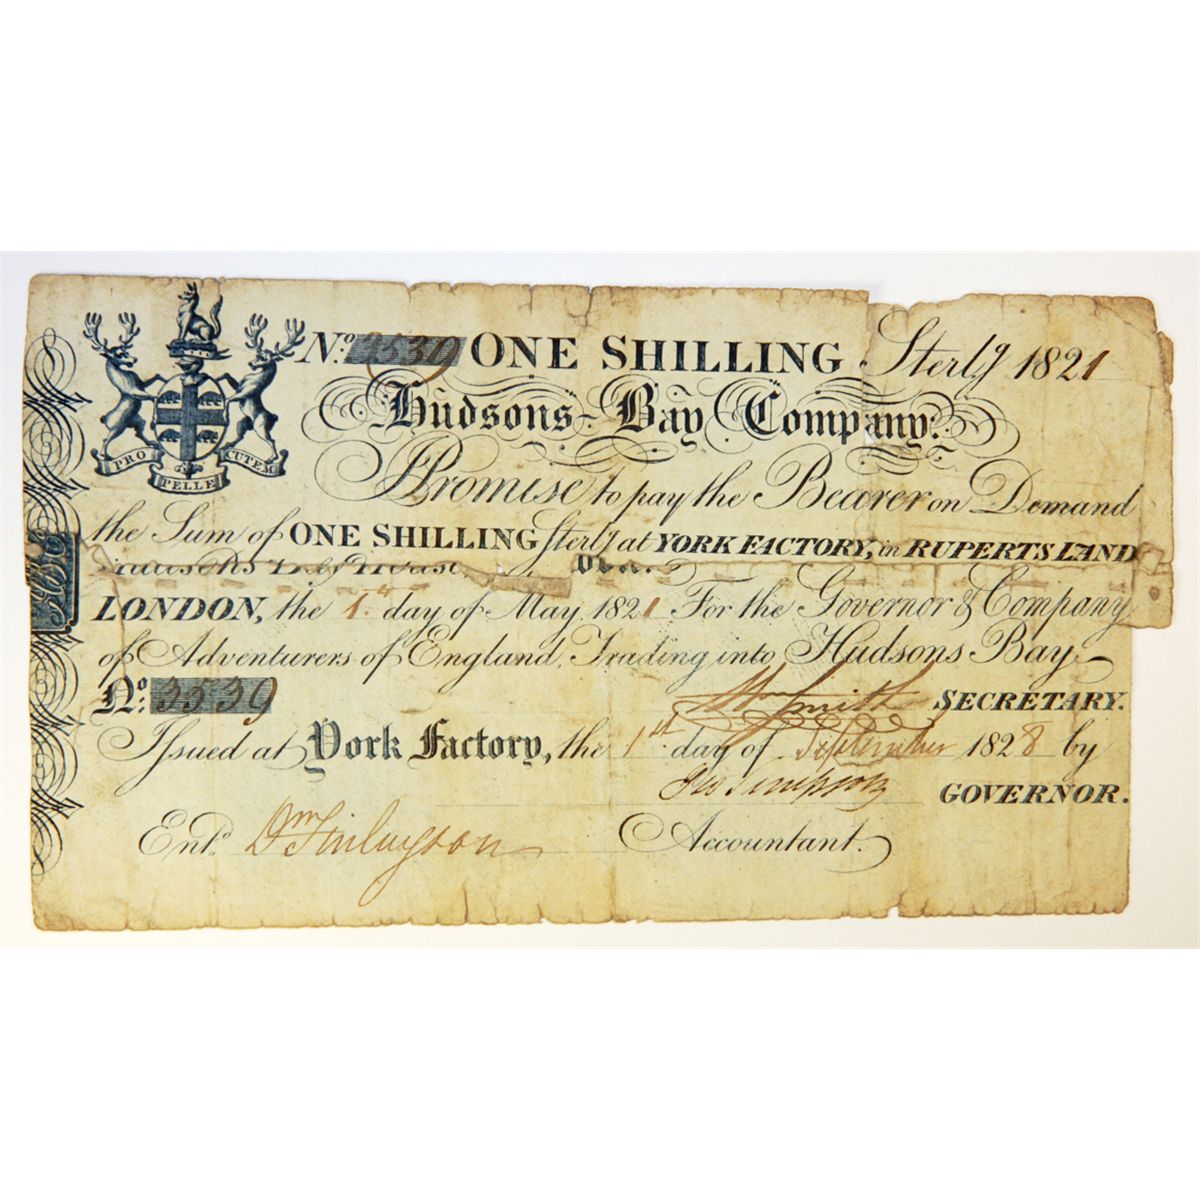 No. 3539 ONE SHILLING Sterlg 1821
PRO PELLE CUTEM
Hudsons Bay Company.
Promise to pay the Bearer on Demand
the Sum of ONE SHILLING Sterlg at YORK FACTORY, in RUPERTS LAND
LONDON, the 1st day of May 1821 For the Governor & Company
of Adventurers of England, Trading into Hudsons Bay
No. 3539 Wm Smith SECRETARY.
Issued at York Factory, the 1st day of September 1828 by
Geo Simpson GOVERNOR.
Entd. Dm Finlayson Accountant.